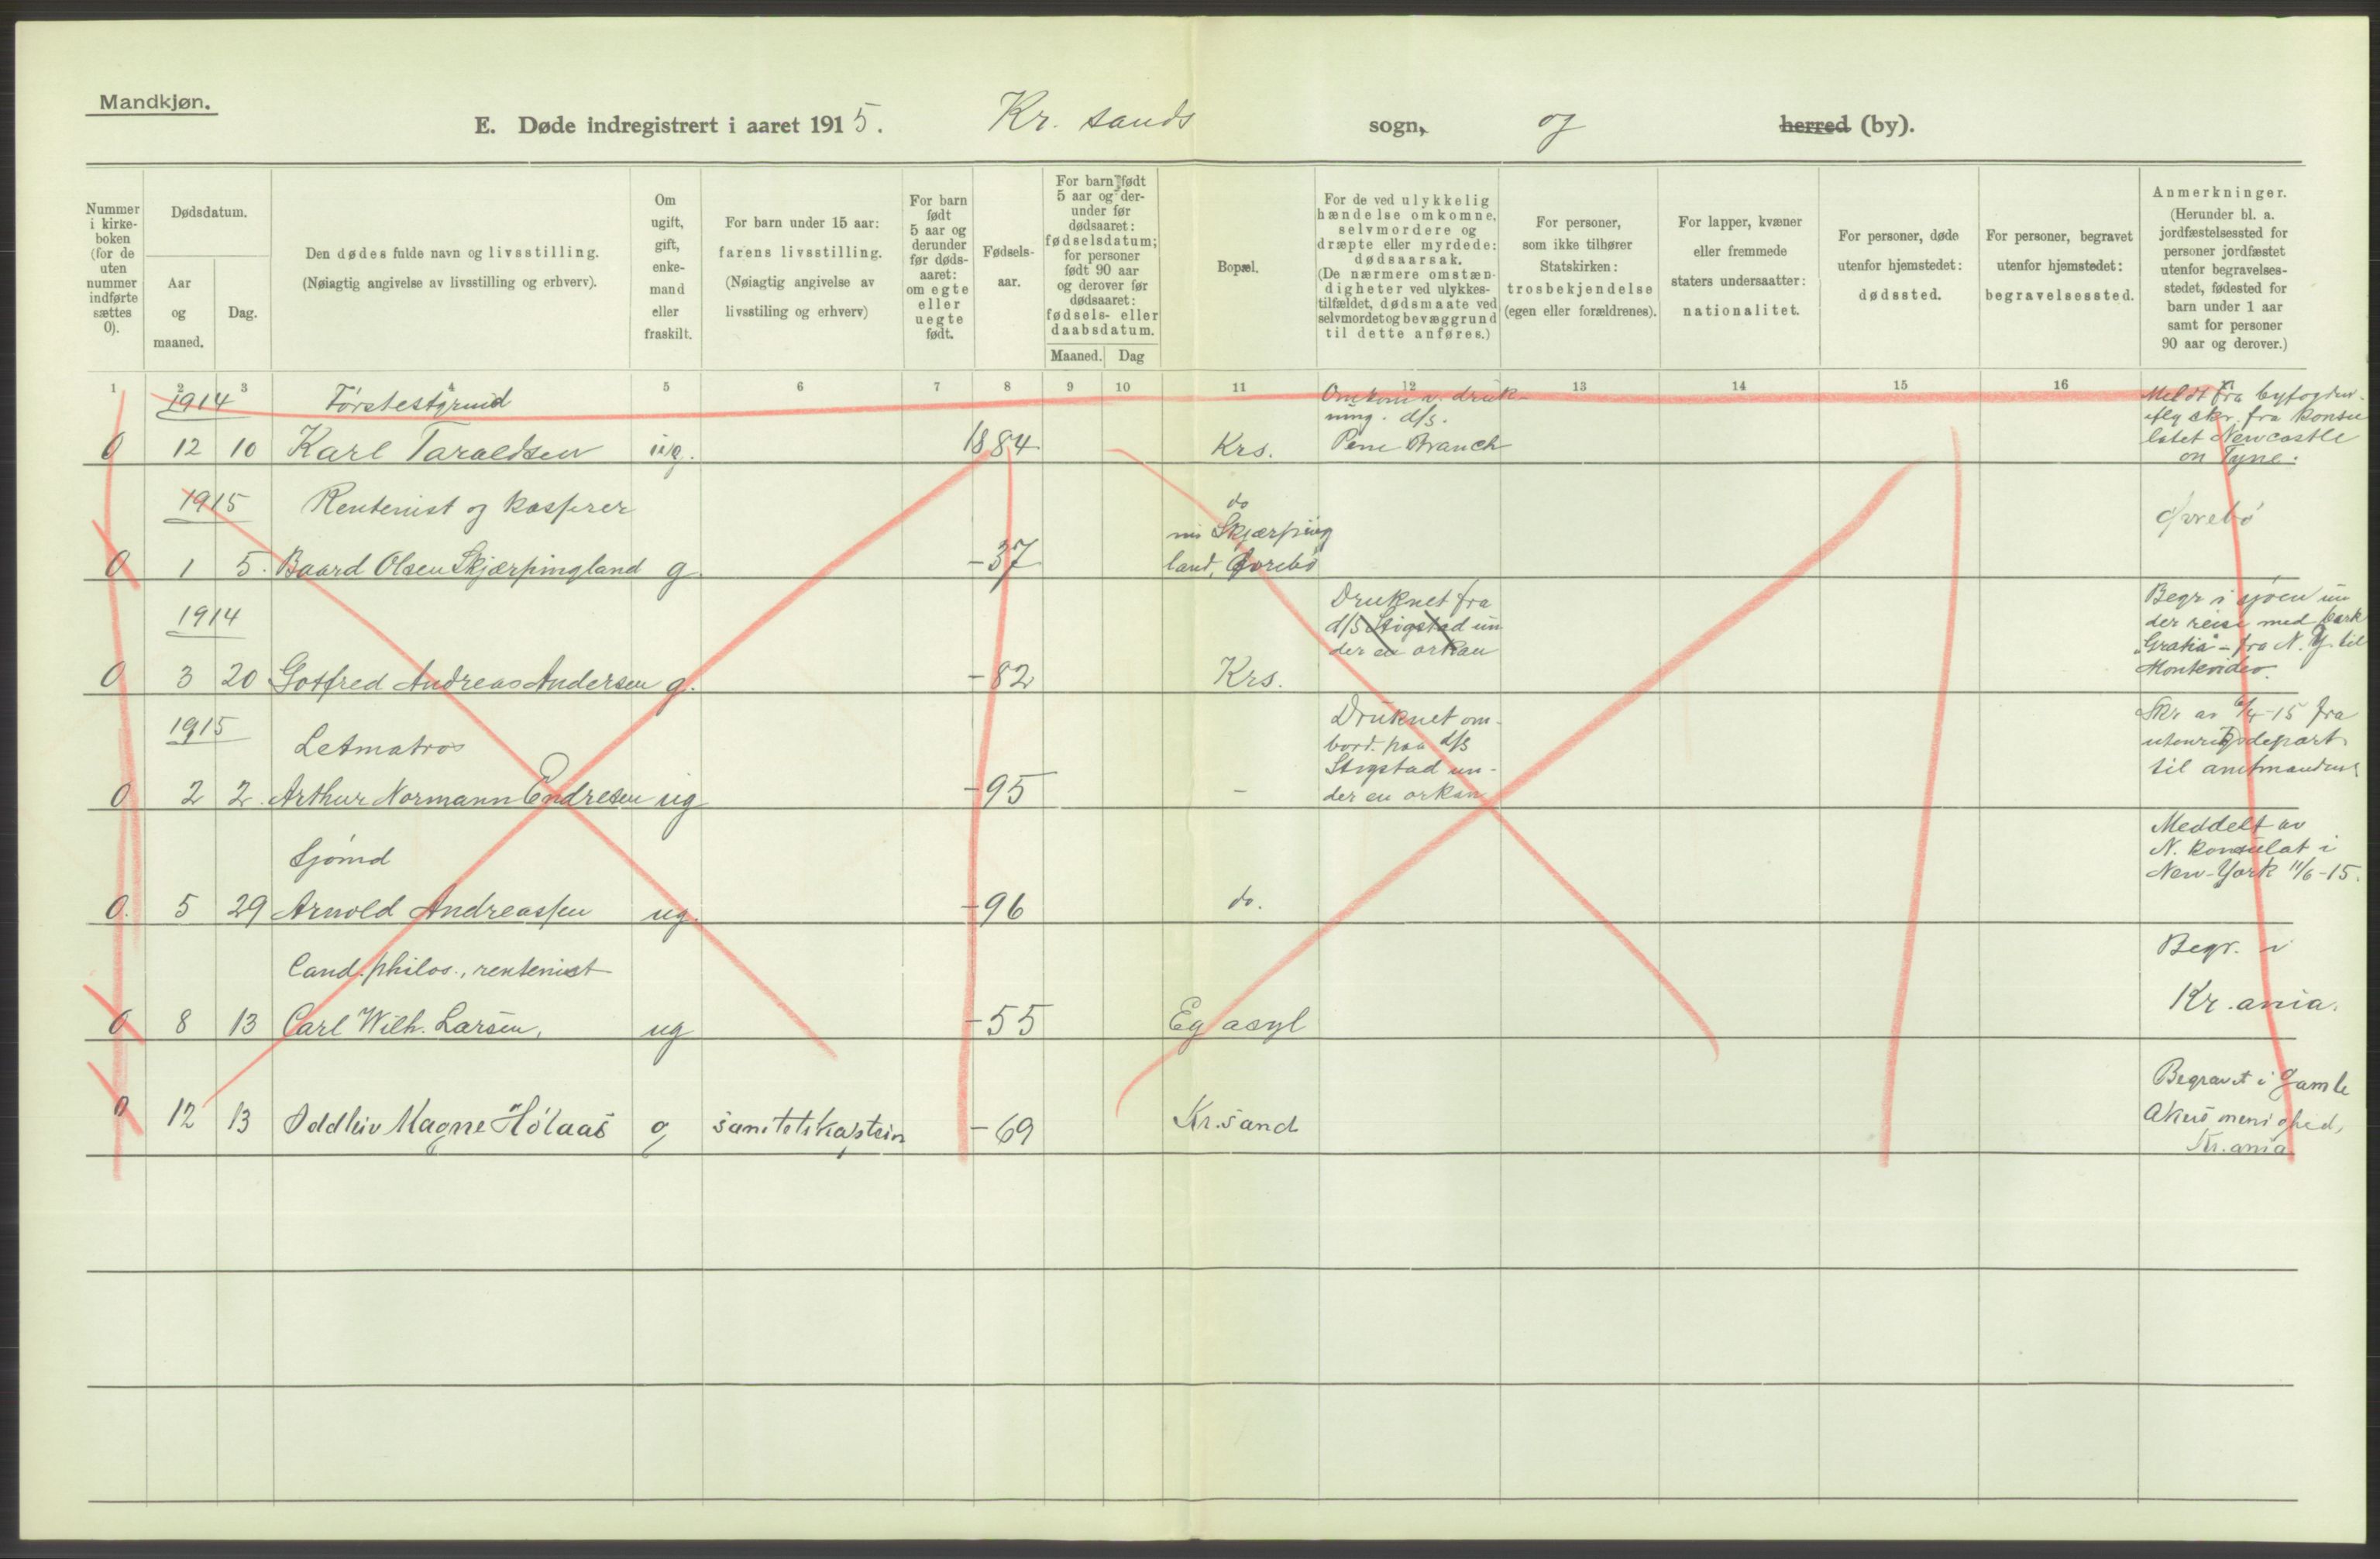 Mandkjøn.
E. Døde indregistrert i aaret 1915. Kr. sands sogn, og herred (by).
Nummer i kirke-boken (for de uten nummer indførte sættes 0).
Dødsdatum.
Aar og maaned.
Dag.
Den dødes fulde navn og livsstilling.
(Nøiagtig angivelse av livsstilling og erhverv).
Om ugift, gift, enke-mand eller fraskilt.
For barn under 15 aar:
farens livsstilling.
(Nøiagtig angivelse av livsstiling og erhverv)
For barn født 5 aar og derunder før døds-aaret: om egte eller uegte født.
Fødsels-aar.
For barn født 5 aar og der-under før dødsaaret: fødselsdatum; for personer født 90 aar og derover før dødsaaret: fødsels- eller daabsdatum.
Maaned. Dag
Bopæl.
For de ved ulykkelig hændelse omkomne, selvmordere og dræpte eller myrdede: dødsaarsak.
(De nærmere omstæn-digheter ved ulykkes-tilfældet, dødsmaate ved selvmordet og bevæggrund til dette anføres.)
For personer, som ikke tilhører Statskirken: trosbekjendelse (egen eller forældrenes).
For lapper, kvæner eller fremmede staters undersaatter: nationalitet.
For personer, døde utenfor hjemstedet: dødssted.
For personer, begravet utenfor hjemstedet: begravelsessted.
Anmerkninger.
(Herunder bl. a. jordfæstelsessted for personer jordfæstet utenfor begravelses-stedet, fødested for barn under 1 aar samt for personer 90 aar og derover.)
1 2 3 4 5 6 7 8 9 10 11 12 13 14 15 16 17
1914 Førstestyrmd
0 12 10 Karl Taraldsen ug. 1884 Krs.
Omkom v. druk-
ning. d/s.
Pene Branch
Meldt fra byfogden
iflg skr. fra konsu
latet Newcastle
on Tyne.
1915 Rentenist og kasserer
0 1 5. Baard Olsen Skjærpingland g. -37
do
nu Skjærping
land, Øvrebö
Øvrebö
1914
0 3 20 Gotfred Andreas Andersen g. -82 Krs.
Druknet fra
d/S Stigstad un
der en orkan
Begr i sjöen un
der reise med bark
"Gratia" - fra N. Y. til
Montevideo.
1915 Letmatros
0 2 2. Arthur Normann Endresen ug -95 -
Druknet om-
bord paa d/s
Stigstad un-
der en orkan
Skr av 6/4-15 fra
utenrigsdepart.
til amtmanden
Sjömd
0. 5 29 Arnold Andreassen ug. -96 do.
Meddelt av
N. konsulat i
New-York 11/6-15.
Cand. philos., rentenist
0 8 13 Carl Wilh. Larsen, ug -55 Eg asyl
Begr. i
Kr.ania.
0 12 13 Oddleiv Magne Hölaas g sanitetskaptein -69 Kr.sand
Begravet i Gamle
Akers menighed,
Kr.ania